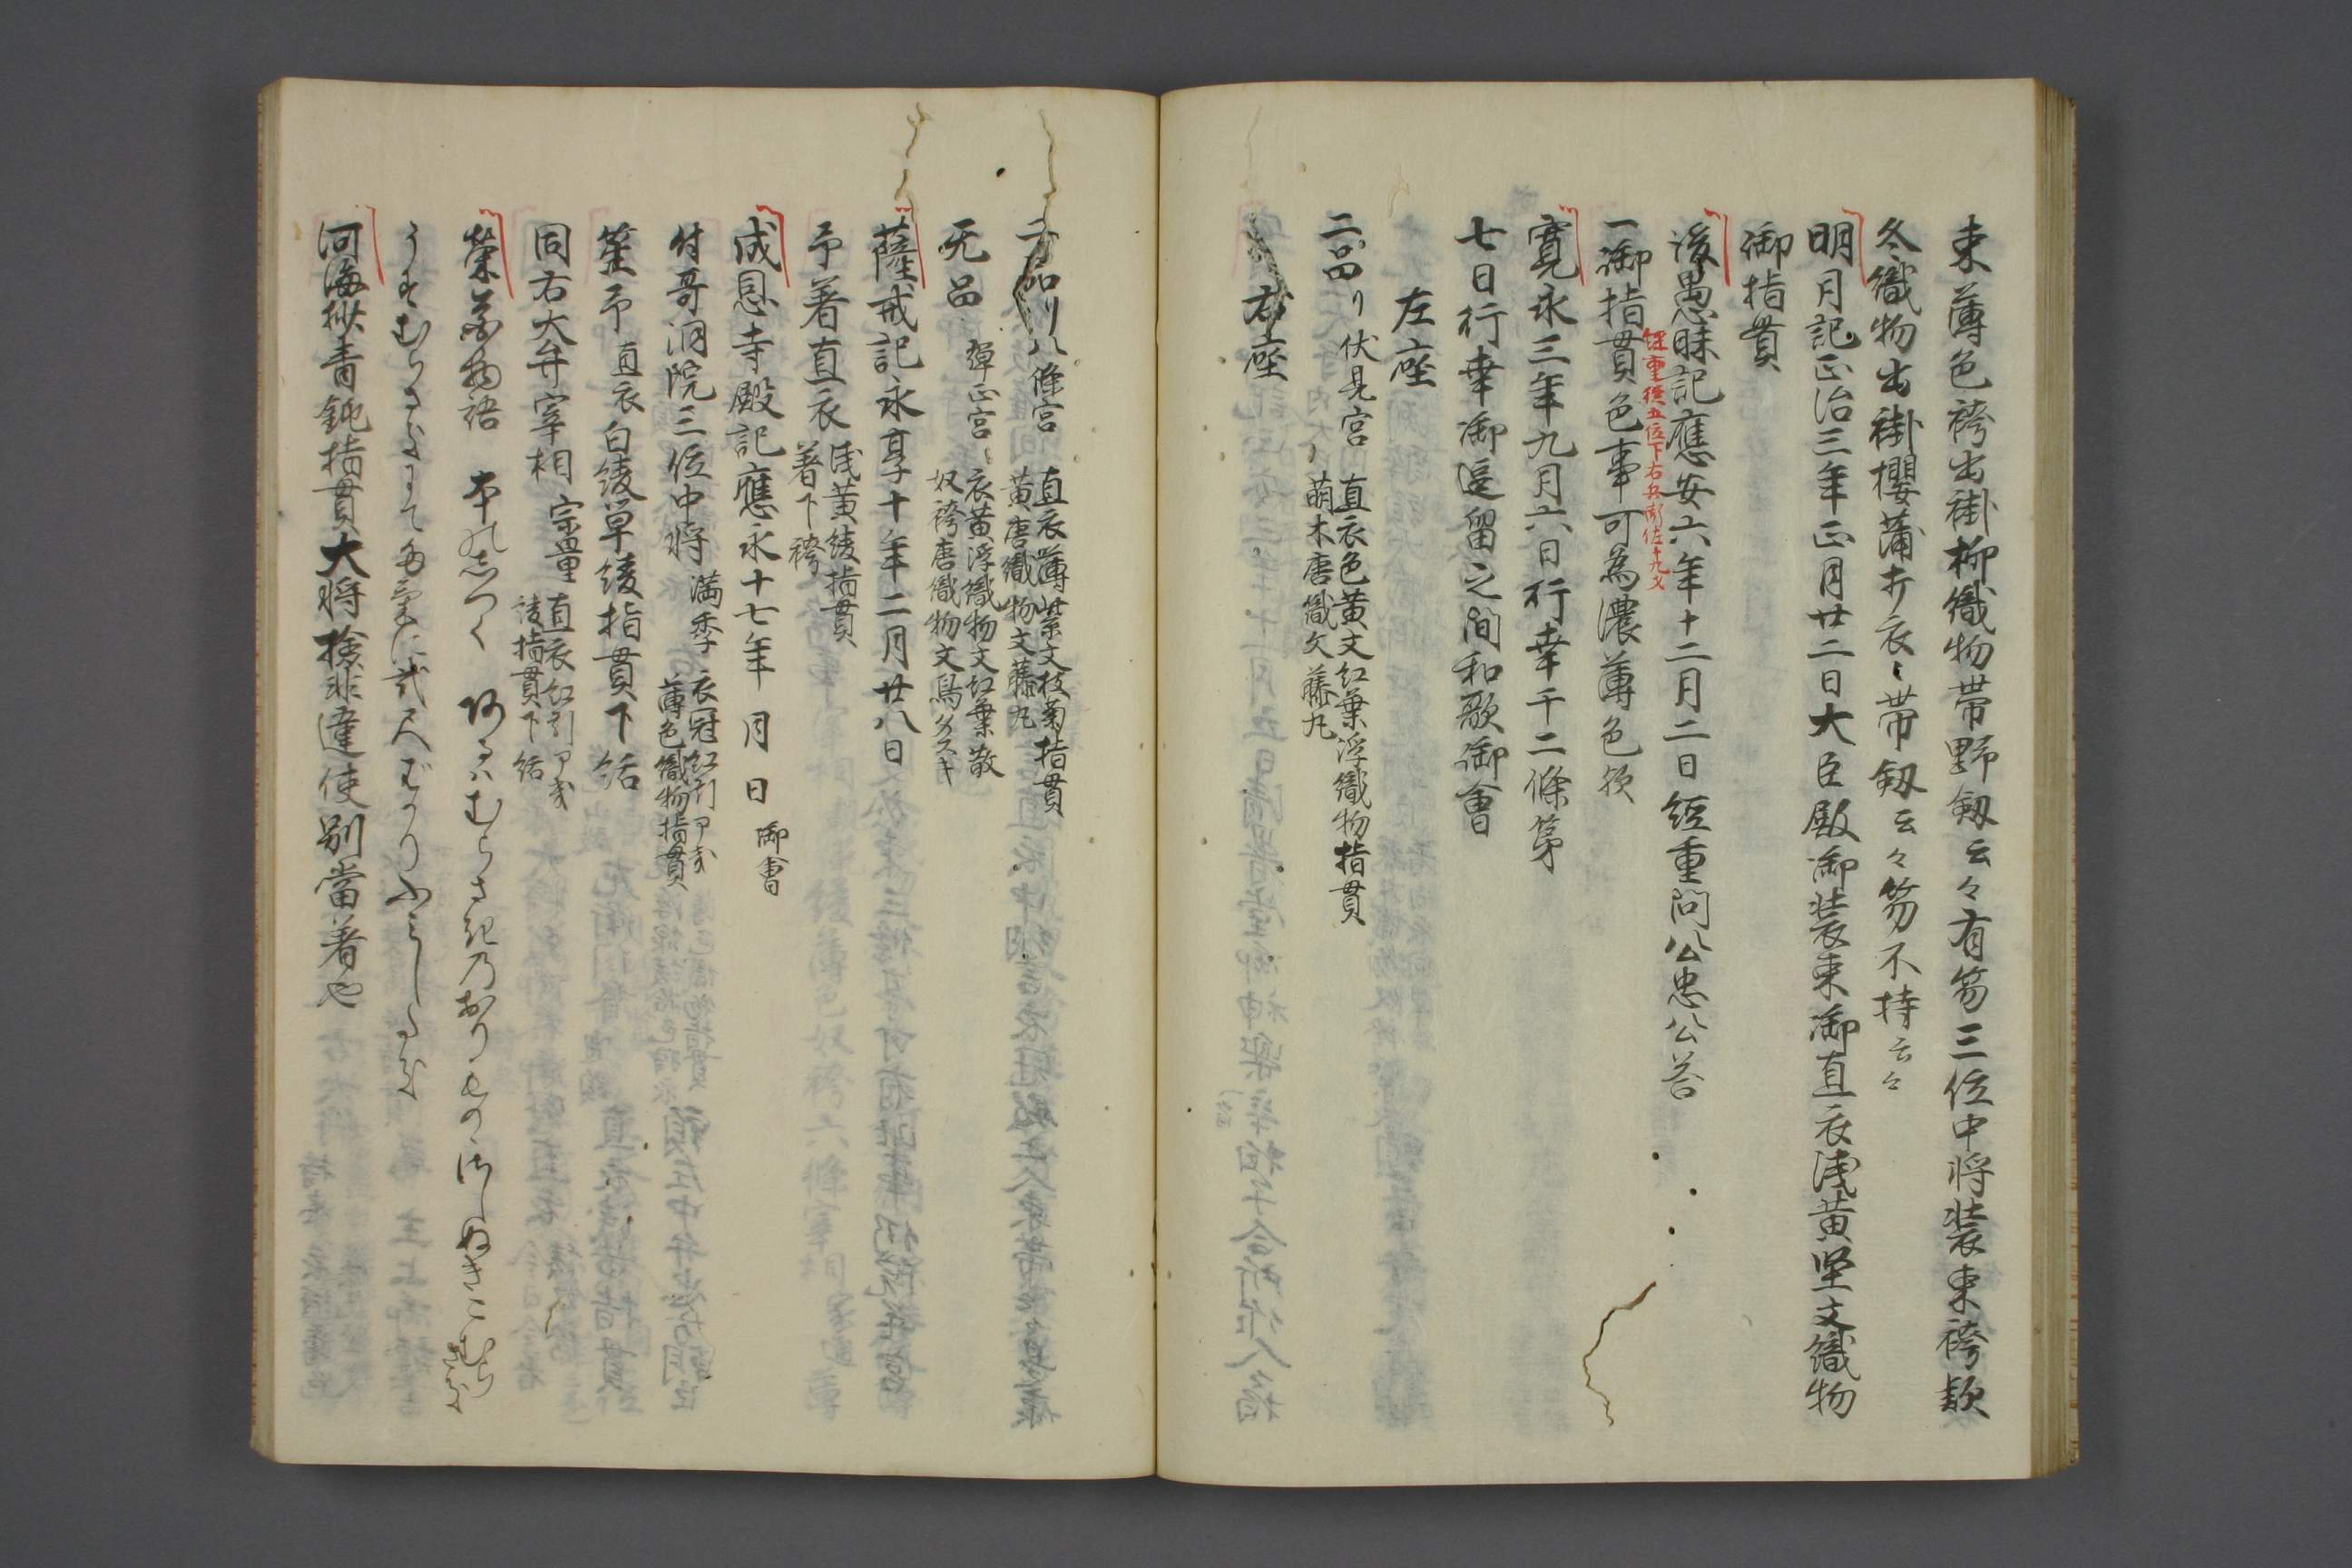 束薄色袴出褂柳織物帯野剱云々有笏三位中将装束袴歟
冬織物出褂櫻蒲打衣〻帯剱云々笏不持云々
明月記正治三年正月廿二日大臣殿御装束御直衣浅黄堅文織物
御指貫
後愚昧記應安六年十二月二日経重問公忠公答
経重従五位下右兵衛佐十九才
一御指貫色事可為濃薄色欤
寛永三年九月六日行幸于二條第
七日行幸御逗留之間和歌御會
左座
二品 伏見宮 直衣色黄文紅葉浮織物指貫
萌木唐織文藤丸
右座
二品 八條宮 直衣薄紫文枝菊指貫
黄唐織物文藤丸
无品 弾正宮 衣黄浮織物文紅葉散
奴袴唐織物文鳥タスキ
薩戒記永享十年二月廿八日
予着直衣 浅黄綾指貫
着下袴
成恩寺殿記應永十七年 月 日 御會
付哥洞院三位中将 満季 衣冠紅引
薄色織物指貫
笙予 直衣白綾単綾指貫下括
同右大弁宰相 宗量 直衣紅引
綾指貫下括
榮花物語
河海抄青鈍指貫大将検非違使別當着也